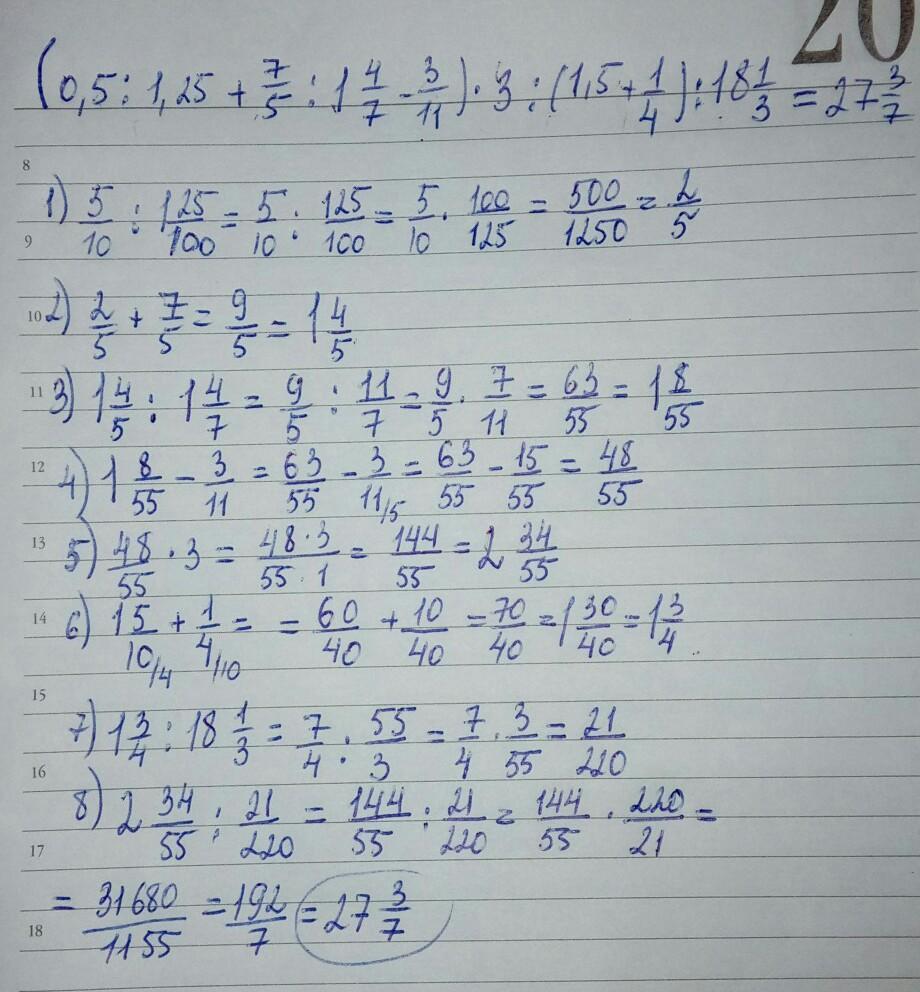 20
(0,5:1,25+7/5:1 4/7-3/11)·3:(1,5+1/4):18 1/3=27 3/7
8
1) 5/10:1 25/100=5/10:125/100=5/10·100/125=500/1250=2/5
9
10 2) 2/5+7/5=9/5=1 4/5
11 3) 1 4/5:1 4/7=9/5:11/7=9/5·7/11=63/55=1 8/55
12 4) 1 8/55-3/11=63/55-3/11/5=63/55-15/55=48/55
13 5) 48/55·3=48·3/55·1=144/55=2 34/55
14 6) 15/10/4+1/4/10= =60/40+10/40=70/40=1 30/40=1 3/4
15
7) 1 3/4:18 1/3=7/4:55/3=7/4·3/55=21/220
16
8) 2 34/55:21/220=144/55:21/220=144/55·220/21=
17
=31680/1155=192/7=27 3/7
18